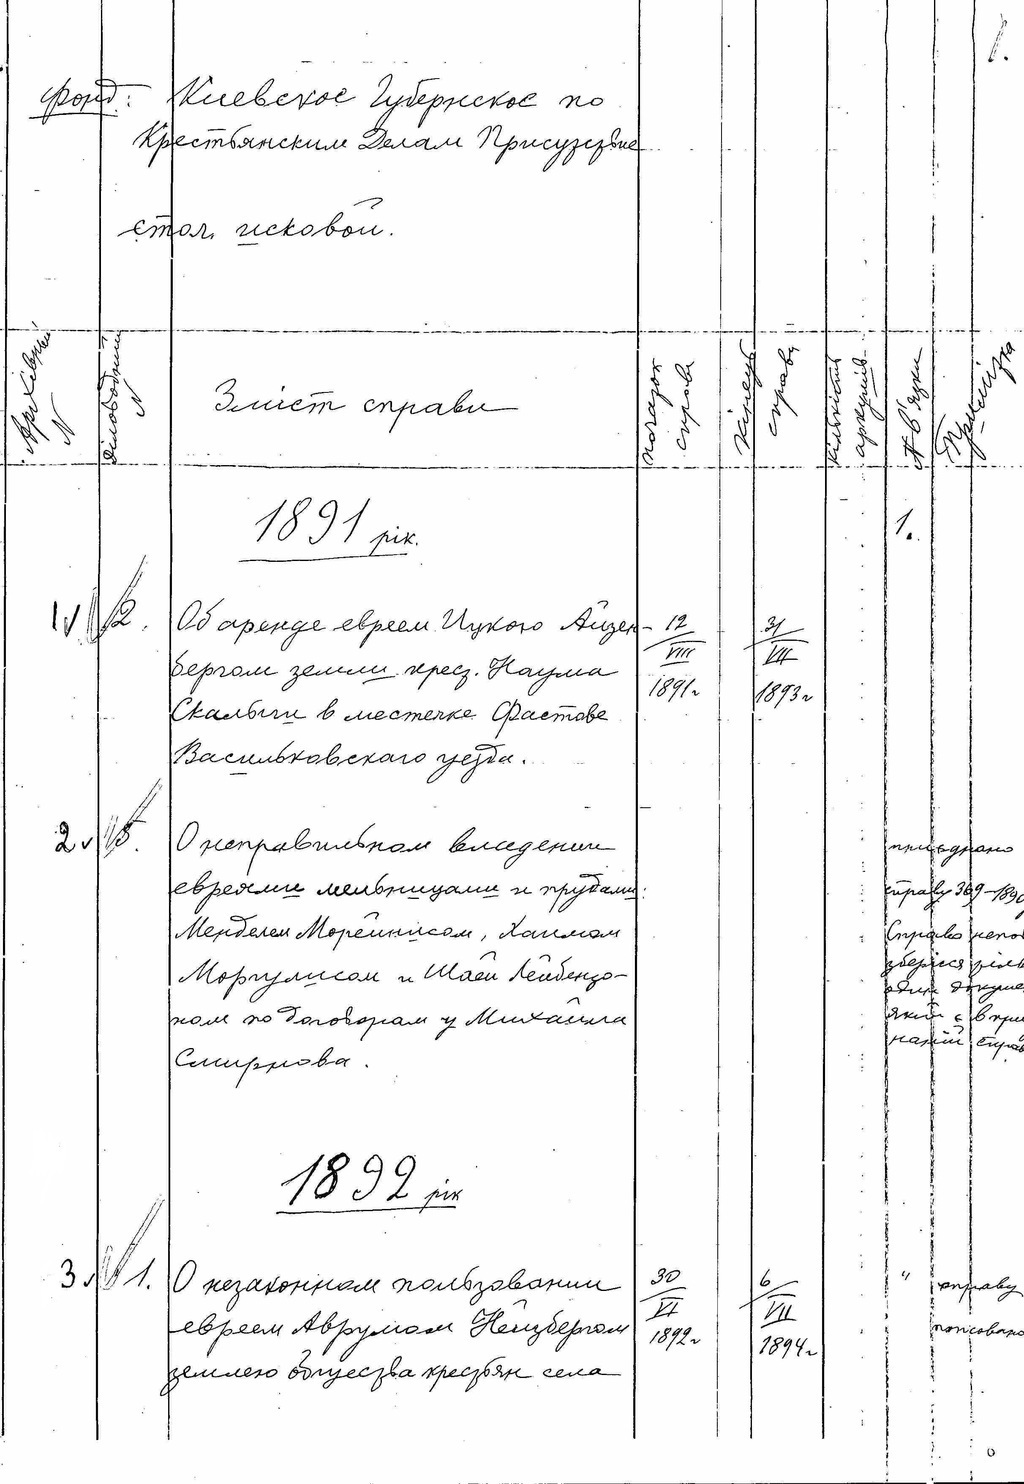 1.
фонд: Киевское Губернское по
Крестьянским Делам Присутствие
стол исковой.
Архівний N
Діловодний N
Зміст справи
початок справи
кінець справи
кількість аркушів
N в'язки
Примітка
1891 рік.
1.
1 v 2. Об аренде евреем Ицкою Айзен-
бергом земли крест. Наума
Скалыги в местечке Фастове
Васильковскаго уезда.
12
VIII
1891 г
31
VII
1893 г
2 v 5. О неправильном владении
евреями мельницами и прудами:
Менделем Морейнисом, Хаимом
Моргулисом и Шаей Лейбензо-
ном по договорам у Михаила
Смирнова.
приєднано
справу 369-1890
Справа
зберігся
один
який є в
справ
1892 рік
3 v 1. О незаконном пользовании
евреем Аврумом Нейзбергом
землею общества крестьян села
30
VI
1892 г
6
VII
1894 г
" справу